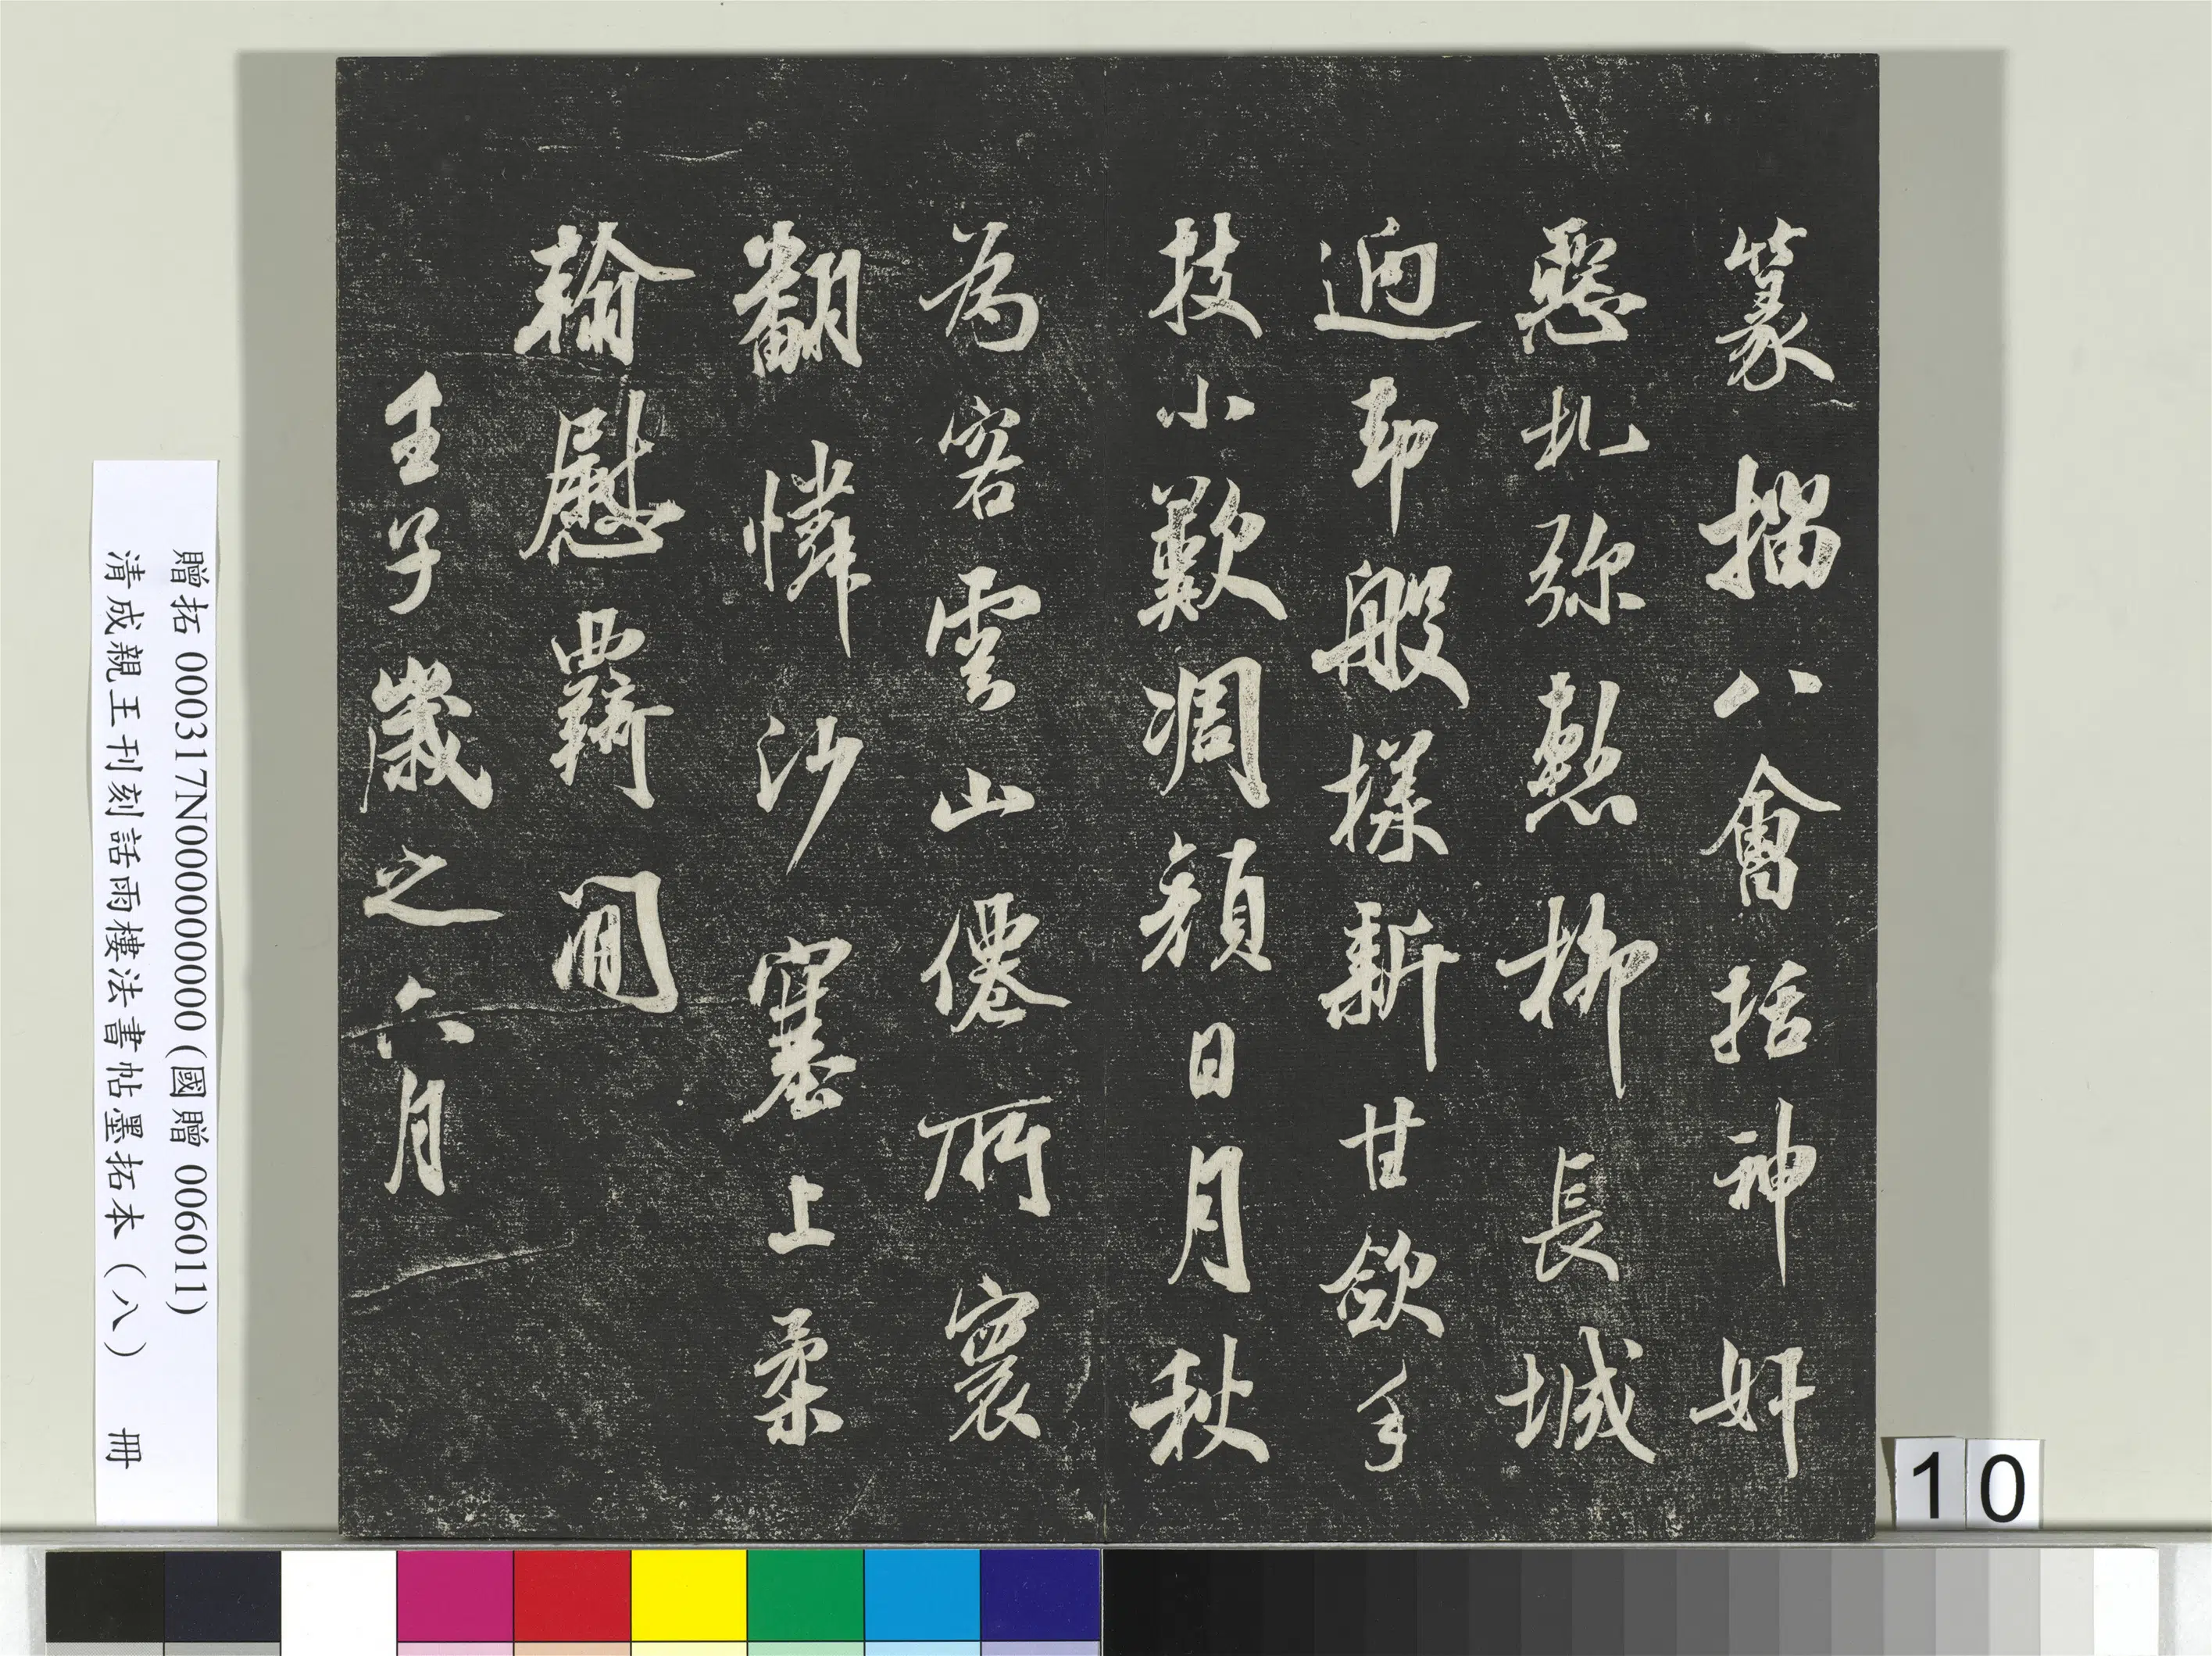 篆揺八會括神奸
懸札弥慙柳長城
迺却般樣新甘斂手
技小歎凋顏日月秋
為容雲山僊所寰
翻憐沙塞上柔
翰慰羇閒
壬子歲之六月
贈拓 000317N000000000 (國贈 006011)
清成親王刊刻話雨樓法書帖墨拓本(八) 冊
10